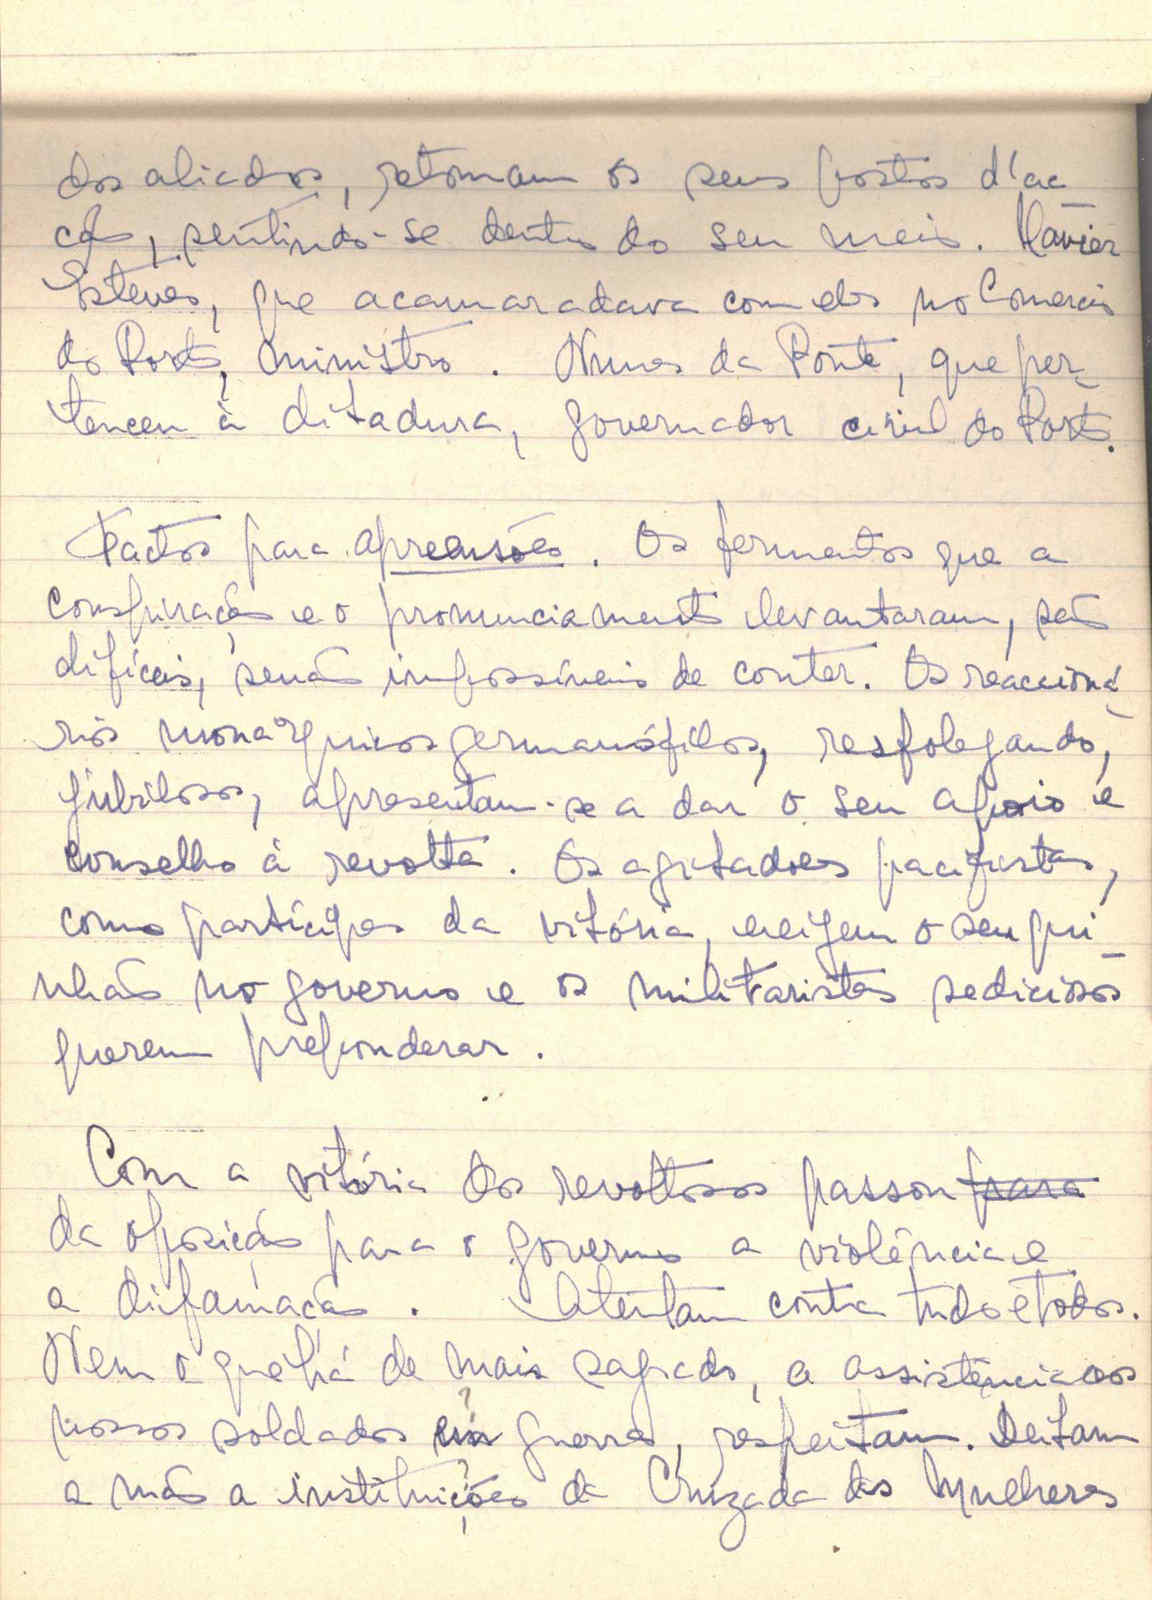 dos aliados, retomam os seus postos d'ac
ção, sentindo-se dentro do seu meio. Xavier
Esteves, que acamaradava com eles no Comercio
do Porto, ministro. Nunes da Ponte, que per-
tenceu à ditadura, governador civil do Porto.
Factos para apreensões. Os fermentos que a
conspiração e o pronunciamento levantaram, são
difíceis, senão impossíveis de conter. Os reaccioná-
rios monárquicos germanófilos, resfolegando,
jubilosos, apresentam-se a dar o seu apoio e
conselho à revolta. Os agitadores pacifistas,
como partícipes da vitória, exigem o seu qui-
nhão no governo e os militaristas sediciosos
querem preponderar.
Com a vitória dos revoltosos passou para
da oposição para o governo a violência e
a difamação. Atentam contra tudo e todos.
Nem o que há de mais sagrado, a assistência aos
nossos soldados em guerra, respeitam. Deitam
a mão a instituições da Cruzada das Mulheres